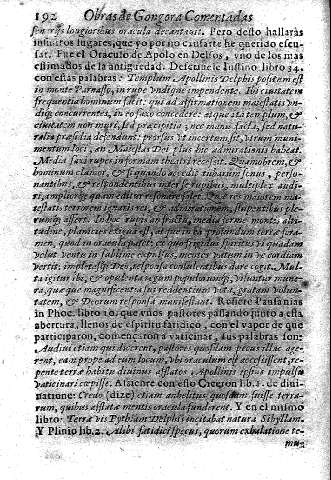 192 Obras de Gongora Comentadas
sen tibi longioribus oracula decantavit. Pero desto hallaràs
infinitos lugares, que yo por no cansarte he querido escu-
sar. Fue el Oraculo de Apolo en Delfos, vno de los mas
estimados de la antiguedad. Descriuele Iustino libro 24.
con estas palabras: Templum Apollinis Delphis positum est
in monte Parnasso, in rupe vndique impendente. Ibi ciuitatem
frequentia hominum facit: qui ad affirmationem maiestatis vn-
dique concurrentes, in eo saxo consedere: atque ita templum, &
ciuitatem non muri, sed præcipitia; nec manu facta, sed natu-
ralia præsidia defendunt: prorsus vt incertum sit, vtrum muni-
mentum loci, an Maiestas Dei plus hic admirationis habeat.
Media saxi rupes in formam theatri recessit. Quamobrem, &
hominum clamor, & si quando accedit tubarum sonus, perso-
nantibus, & respondentibus inter se rupibus, multiplex audi-
ri, ampliorque quam editur resonare solet. Quæ res maiorem ma-
iestatis terrorem ignaris rei, & admirationem, stupentibus ple-
rumque affert. In hoc rupis anfractu, media ferme montis alti-
tudine, planicies exigua est, atque in ea profundum terræ fora-
men, quod in oracula patet; ex quo frigidus spiritus vi quadam
velut vento in sublime expulsus, mentes vatum in ve cordiam
vertit; impletasque Deo, responsa consulentibus dare cogit. Mul-
ta igitur ibi, & opulenta regum populorumque visuntur mune-
ra, quæque magnificentia sui reddentium vota, gratam volun-
tatem, & Deorum responsa manifestant. Refiere Pausanias
in Phoc. libro 10. que vnos pastores passando junto a esta
abertura, llenos de espiritu fatidico, con el vapor de que
participaron, començaron a vaticinar, sus palabras son:
Audiui etiam qui dicerent, pastores, quùm pecus illac age-
rent, ea prope ad eum locum, vbi oraculum est accessissent, re-
pente terræ habitu diuinus afflatos Apollinis ipsius impulsu
vaticinari cœpisse. Assiente con esto Ciceron lib. 1. de diui-
natione: Credo (dize) etiam anhelitus quosdam fuisse terra-
rum, quibus afflatæ mentes oracula funderent. Y en el mismo
libro: Terræ vis Pythiam Delphis incitabat natura Sibyllam.
Y Plinio lib. 2. Alibi fatidici specus, quorum exhalatione te-
mu-